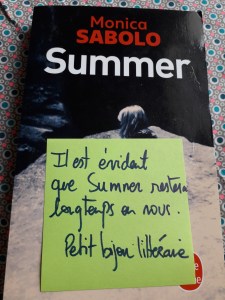 Monica
SABOLO
Summer
Il est évident
que Summer restera
longtemps en nous.
Petit bijou littéraire